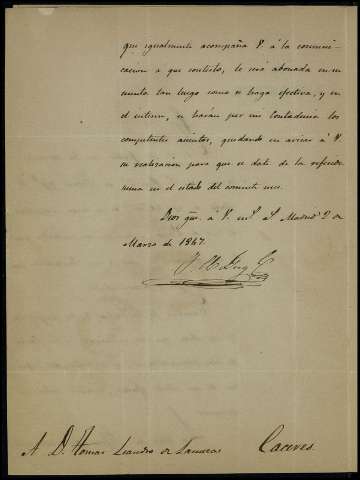 que igualmente acompaña V. á la comuni-
cacion a que contesto, le será abonada en su
cuenta tan luego como se haga efectiva, y en
el interin, se harán por mi Contaduria los
competentes asientos, quedando en avisar á V.
su realizacion para que se date de la referida
suma en el estado del corriente mes.
Dios gue. á V. m.s a.s Madrid 2 de
Marzo de 1847.
A D. Tomas Leandro de
Caceres.